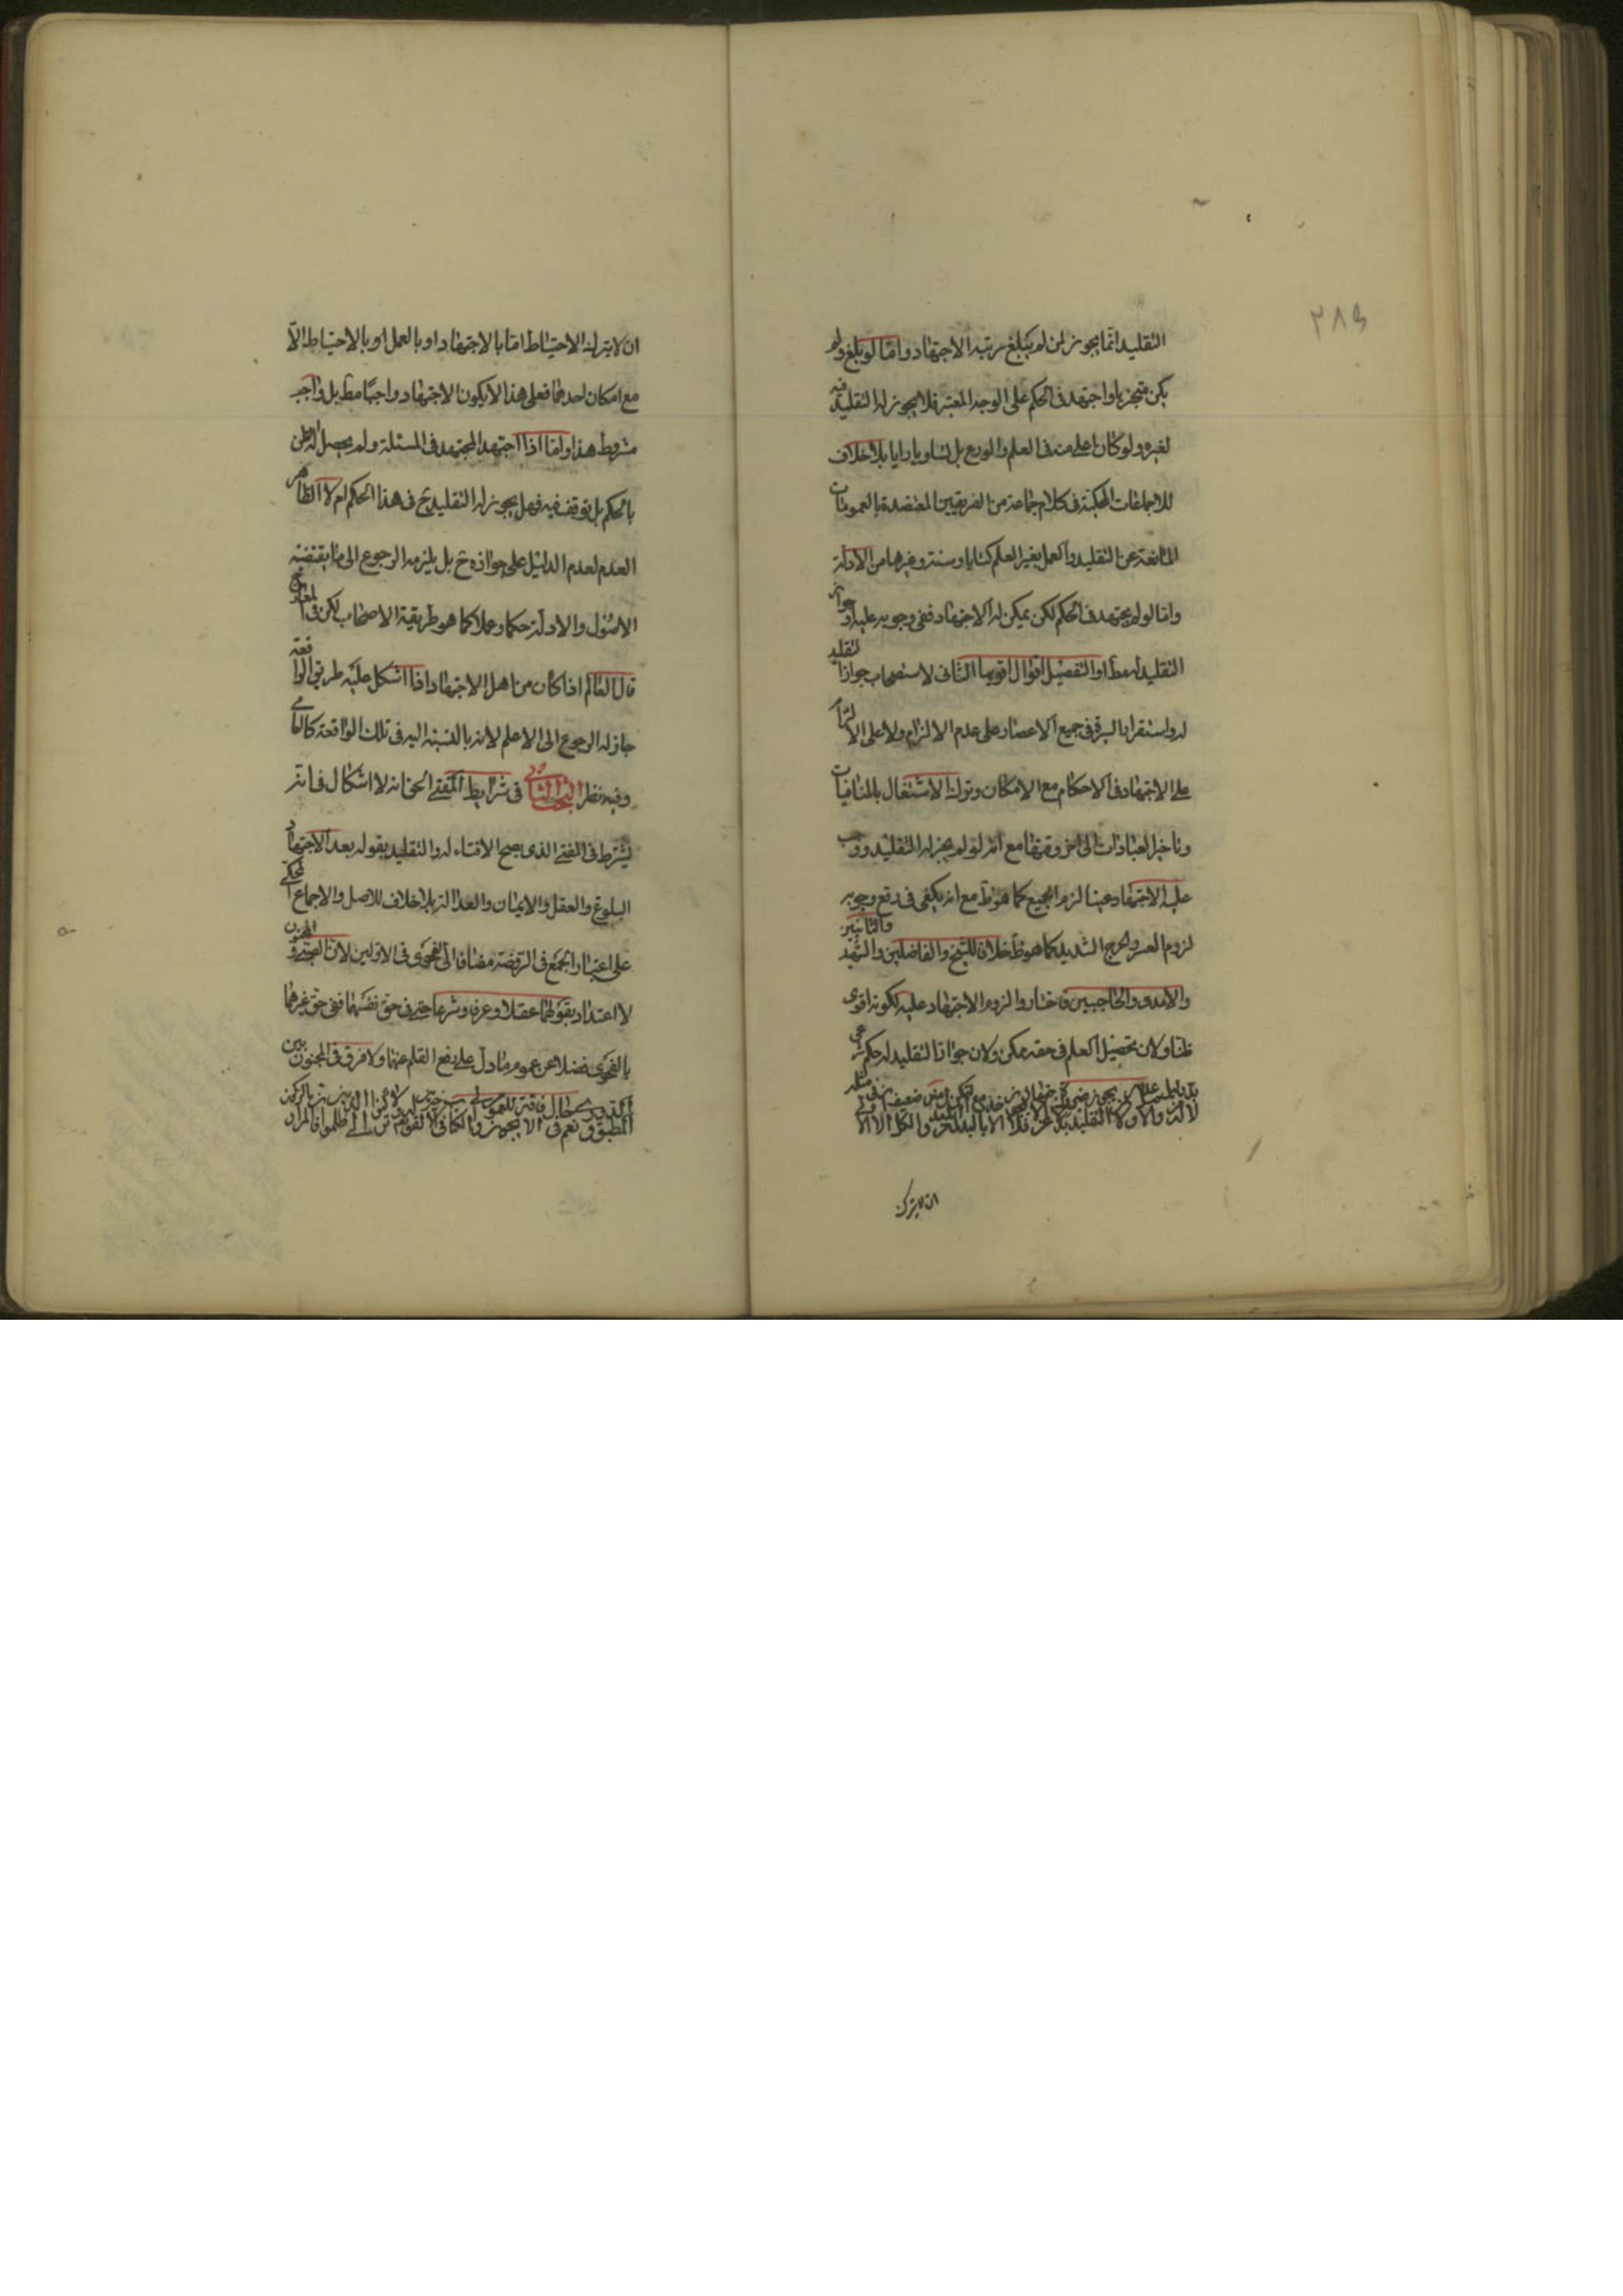 ٢٨٥
التقليد انّما يجوز لمن لم يبلغ رتبة الاجتهاد و امّا لو بلغ ولو
يكن متجزيا واجتهد فى الحكم على الوجه المعتبر فلا يجوز له التقليد فيه
لغيره ولو كان اعلم منه فى العلم والورع بل تساويا رايا بلا خلاف
للاجماعات المحكية فى كلام جماعة من الفريقين المعتضدة بالعمومات
المانعة عن التقليد والعمل بغير العلم كتابا وسنة وغيرها من الادلة
وامّا لو لم يجتهد فى الحكم لكن يمكن له الاجتهاد ففى وجوبه عليه او جواز
التقليد له مط او التفصيل اقوال اقويها الثانى لاستصحاب جواز التقليد
له واستقرار السيرة فى جميع الاعصار على عدم الالزام ولا على الالتزام
على الاجتهاد فى الاحكام مع الامكان وترك الاشتغال بالمنافيات
وتاخير العبادات الى اخر وقتها مع انه لو لم يجز له التقليد ووجب
عليه الاجتهاد عينا لزم الجميع كما هو ظ مع انه يكفى فى دفع وجوبه
لزوم العسر والحرج الشديد كما هو ظ خلافا للشيخ والفاضلين والشهيد والثانيين
والامدى والحاجبيين فاختاروا لزوم الاجتهاد عليه لكونه اقوى
ظنا ولان تحصيل العلم فى حقه ممكن ولان جواز التقليد له حكم شرعى
ان لا يترك
ان لا يترك الاحتياط امّا بالاجتهاد او بالعمل او بالاحتياط الّا
مع امكان احدهما فعلى هذا لا يكون الاجتهاد واجبًا مط بل واجب
مشروط هذا وامّا اذا اجتهد المجتهد فى المسئلة ولم يحصل له الظن
بالحكم بل توقف فيه فهل يجوز له التقليد ح فى هذا الحكم ام لا الظاهر
العدم لعدم الدليل على جوازه ح بل يلزمه الرجوع الى ما يقتضيه
الاصول والادلة حكما وعملا كما هو طريقة الاصحاب لكن فى المعارج
قال العالم اذا كان من اهل الاجتهاد اذا اشكل عليه طريق الواقعة
جاز له الرجوع الى الاعلم لانه بالنسبة اليه فى تلك الواقعة كالعامى
وفيه نظر البحث الثانى فى شرايط المفتى الحى انه لا اشكال فى انه
يشترط فى المفتى الذى يصح الافتاء له والتقليد بقوله بعد الاجتهاد
البلوغ والعقل والايمان والعدالة بلا خلاف للاصل والاجماع المحكى
على اعتبار الجمع فى الروضة مضافا الى الفحوى فى الاولين لان الصبى والمجنون
لا اعتداد بقولهما عقلا وعرفا وشرعا حتى فى حق نفسهما ففى حق غيرهما
بالفحوى فضلا عن عموم ما دل على رفع القلم عنهما ولا فرق فى المجنون بين